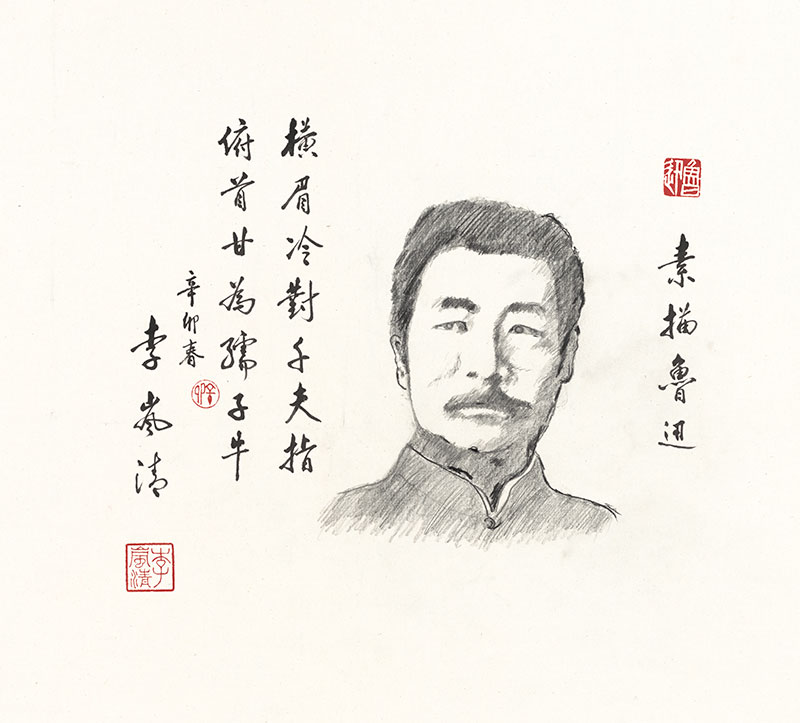 素描魯迅
魯迅
橫眉冷對千夫指
俯首甘為孺子牛
辛卯春
李嵐清
辛卯
李嵐清